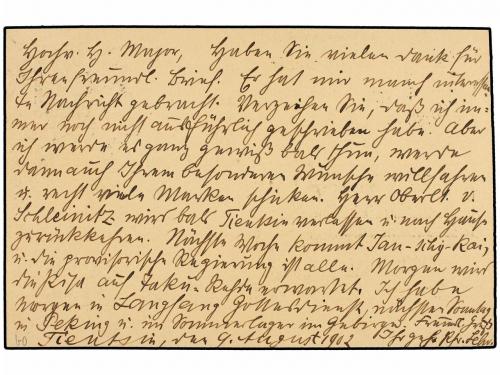 Hochv. H. Major, Haben Sie vielen Dank für
Ihren freundl. Brief. Er hat mir manch interessan-
te Nachricht gebracht. Verzeihen Sie, daß ich im-
mer noch nicht ausführlich geschrieben habe. Aber
ich werde es ganz gewiß bald thun, werde
dann auch Ihrem besonderen Wunsche willfahren
u. recht viele Marken schicken. Herr Oberlt. v.
Schleinitz wird bald Tientsin verlassen u. nach Hause
zurückkehren. Nächste Woche kommt Jan-schy-kai,
u. die provisorische Regierung ist alle. Morgen wird
die auf Taku-Rhede erwartet. Ich habe
morgen in Langfang Gottesdienst, nächsten Sonntag
in Peking u. im Sommerlager im Gebirge. Freundl. Gruß
Tientsin, den 9. August 1902 Ihr